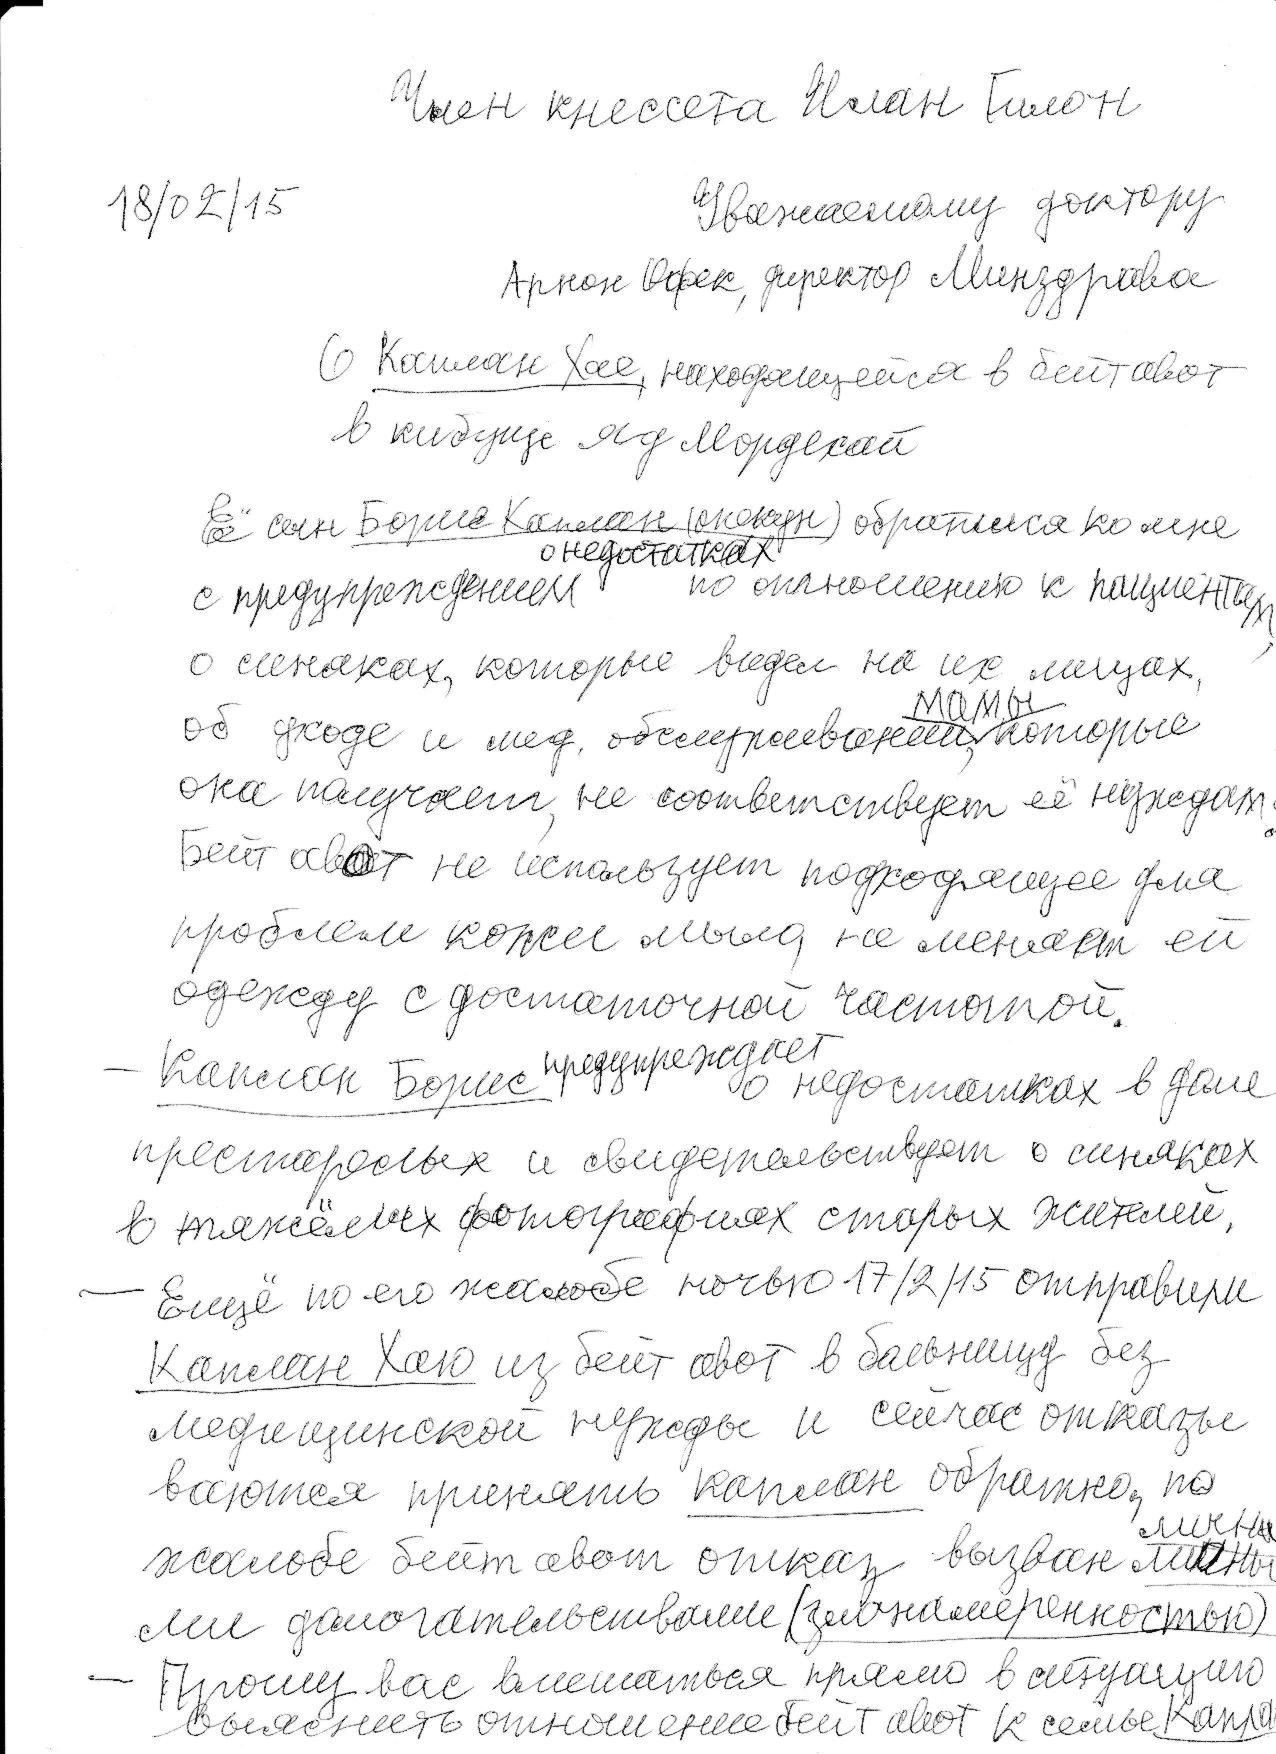 Член кнессета Илан Гилон
18/02/15
Уважаемому доктору
Арнон Офек, директор Минздрава
О Каплан Хае, находящейся в бейт авот
в кибуце Яд Мордехай
Её сын Борис Каплан (опекун) обратился ко мне
о недостатках
с предупреждением по отношению к пациентам,
о синяках, которые видел на их лицах,
мамы
об уходе и мед. обслуживании, которые
она получает, не соответствует её нуждам.
Бейт авот не использует подходящее для
проблем кожи мыло, не меняет ей
одежду с достаточной частотой.
предупреждает
– Каплан Борис о недостатках в доме
престарелых и свидетельствует о синяках
в тяжёлых фотографиях старых жителей.
– Ещё по его жалобе ночью 17/2/15 отправили
Каплан Хаю из бейт авот в больницу без
медицинской нужды и сейчас отказы
ваются принять Каплан обратно, по
личны
жалобе бейт авот отказ вызван
ми домогательствами (злонамеренностью)
– Прошу вас вмешаться прямо в ситуацию
выяснить отношение бейт авот к семье Капла